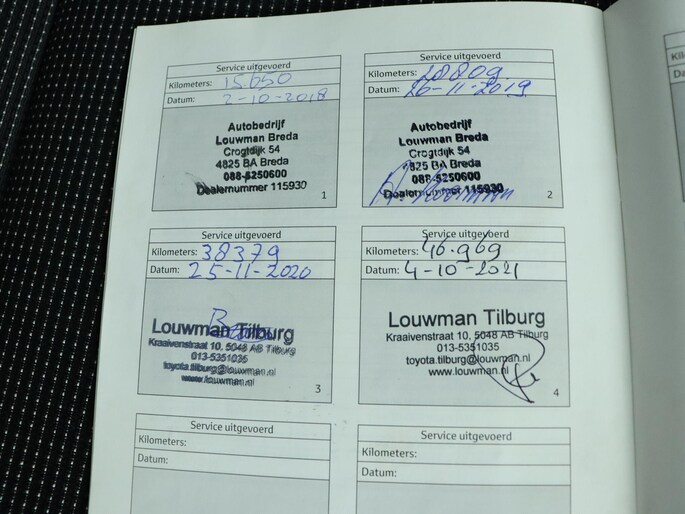 Service uitgevoerd
Kilometers: 15.650
Datum: 2-10-2018
Autobedrijf
Louwman Breda
Crogtdijk 54
4825 BA Breda
088-5250600
Dealernummer 115930
1
Service uitgevoerd
Kilometers: 28809
Datum: 26-11-2019
Autobedrijf
Louwman Breda
Crogtdijk 54
4825 BA Breda
088-5250600
Dealernummer 115930
2
Service uitgevoerd
Kilometers: 38379
Datum: 25-11-2020
Louwman Tilburg
Kraaivenstraat 10, 5048 AB Tilburg
013-5351035
toyota.tilburg@louwman.nl
www.louwman.nl
3
Service uitgevoerd
Kilometers: 46.969
Datum: 4-10-2021
Louwman Tilburg
Kraaivenstraat 10, 5048 AB Tilburg
013-5351035
toyota.tilburg@louwman.nl
www.louwman.nl
4
Service uitgevoerd
Kilometers:
Datum:
Service uitgevoerd
Kilometers:
Datum: